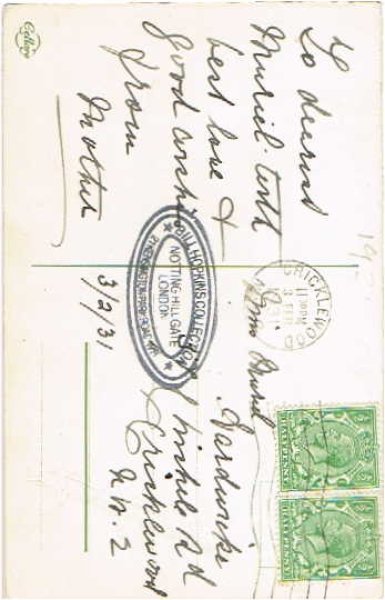 Celesque
To dearest
Muriel with
best love &
good wishes
from
Mother
3/2/31
BILL HOPKINS COLLECTION
NOTTING HILL GATE
LONDON
CRICKLEWOOD
11 30 PM
3 FEB
31
Miss Muriel
Hardwicke
Cricklewood
N.W. 2
HALFPENNY
HALFPENNY